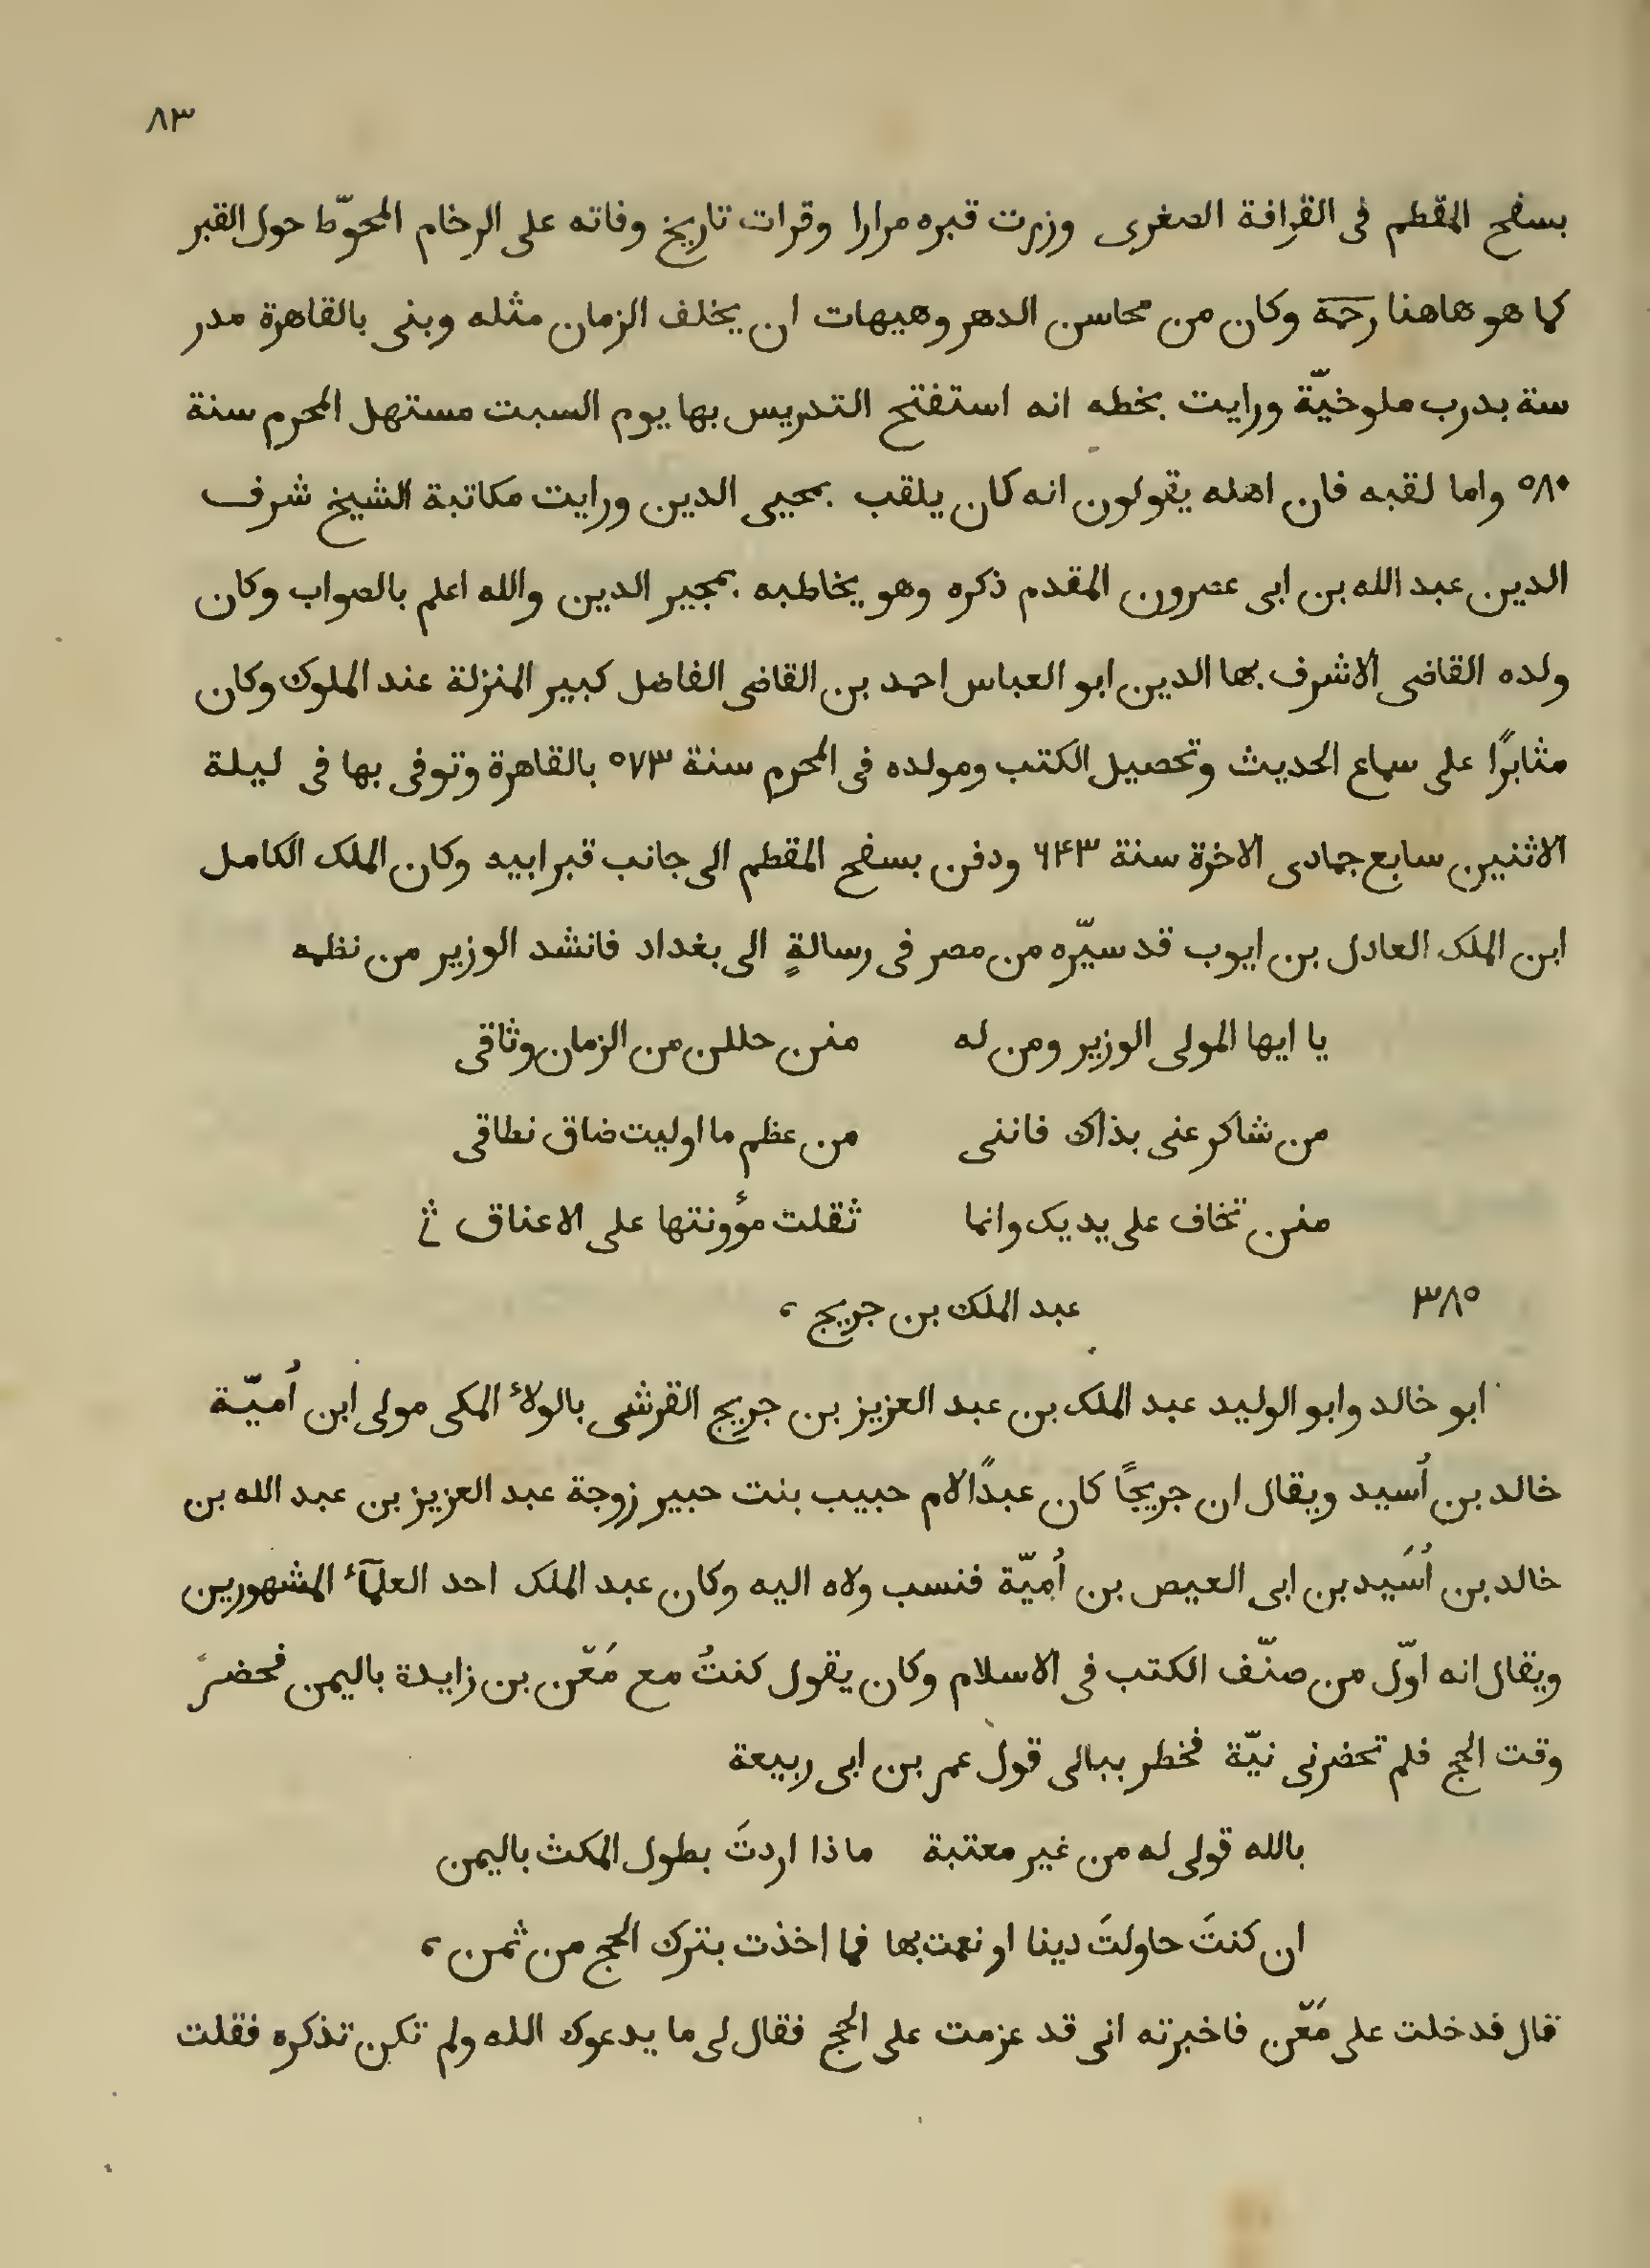 ٨٣
بسفح المقطم فى القرافة الصغرى وزرت قبره مرارا وقرات تاريخ وفاته على الرخام المحوّط حول القبر
كما هو هاهنا رحمة وكان من محاسن الدهر وهيهات ان يخلف الزمان مثله وبنى بالقاهرة مدر
سة بدرب ملوخيّة ورايت بخطه انه استفتح التدريس بها يوم السبت مستهل المحرم سنة
٥٨٠ واما لقبه فان اهله يقولون انه كان يلقب بمحيى الدين ورايت مكاتبة الشيخ شرف
الدين عبد الله بن ابى عصرون المقدم ذكره وهو يخاطبه بمجير الدين والله اعلم بالصواب وكان
ولده القاضى الاشرف بها الدين ابو العباس احمد بن القاضى الفاضل كبير المنزلة عند الملوك وكان
مثابرًا على سماع الحديث وتحصيل الكتب ومولده فى المحرم سنة ٥٧٣ بالقاهرة وتوفى بها فى ليلة
الاثنين سابع جمادى الاخرة سنة ٦۴٣ ودفن بسفح المقطم الى جانب قبر ابيه وكان الملك الكامل
ابن الملك العادل بن ايوب قد سيّره من مصر فى رسالةٍ الى بغداد فانشد الوزير من نظمه
يا ايها المولى الوزير ومن له منن حللن من الزمان وثاقى
من شاكر عنى بذاك فاننى من عظم ما اوليت ضاق نطاقى
منن تخاف على يديك وانما ثقلت مؤونتها على الاعناق
٣٨٥ عبد الملك بن جريج ،
ابو خالد وابو الوليد عبد الملك بن عبد العزيز بن جريج القرشى بالولاء المكى مولى ابن اُميّة
خالد بن اُسيد ويقال ان جريجًا كان عبدًا لام حبيب بنت حبير زوجة عبد العزيز بن عبد الله بن
خالد بن اُسَيد بن ابى العيص بن اُميّة فنسب ولاه اليه وكان عبد الملك احد العلمآء المشهورين
ويقال انه اوّل من صنّف الكتب فى الاسلام وكان يقول كنتُ مع مَعّن بن زايدة باليمن فحضرَ
وقت الحج فلم تحضرنى نيّة فخطر ببالى قول عمر بن ابى ربيعة
بالله قولى له من غير معتبة ماذا اردتَ بطول المكث باليمن
ان كنتَ حاولتَ دينا او نعمت بها فما اخذت بترك الحج من ثمن ،
قال فدخلت على مَعّن فاخبرته انى قد عزمت على الحج فقال لى ما يدعوك الله ولم تكن تذكره فقلت